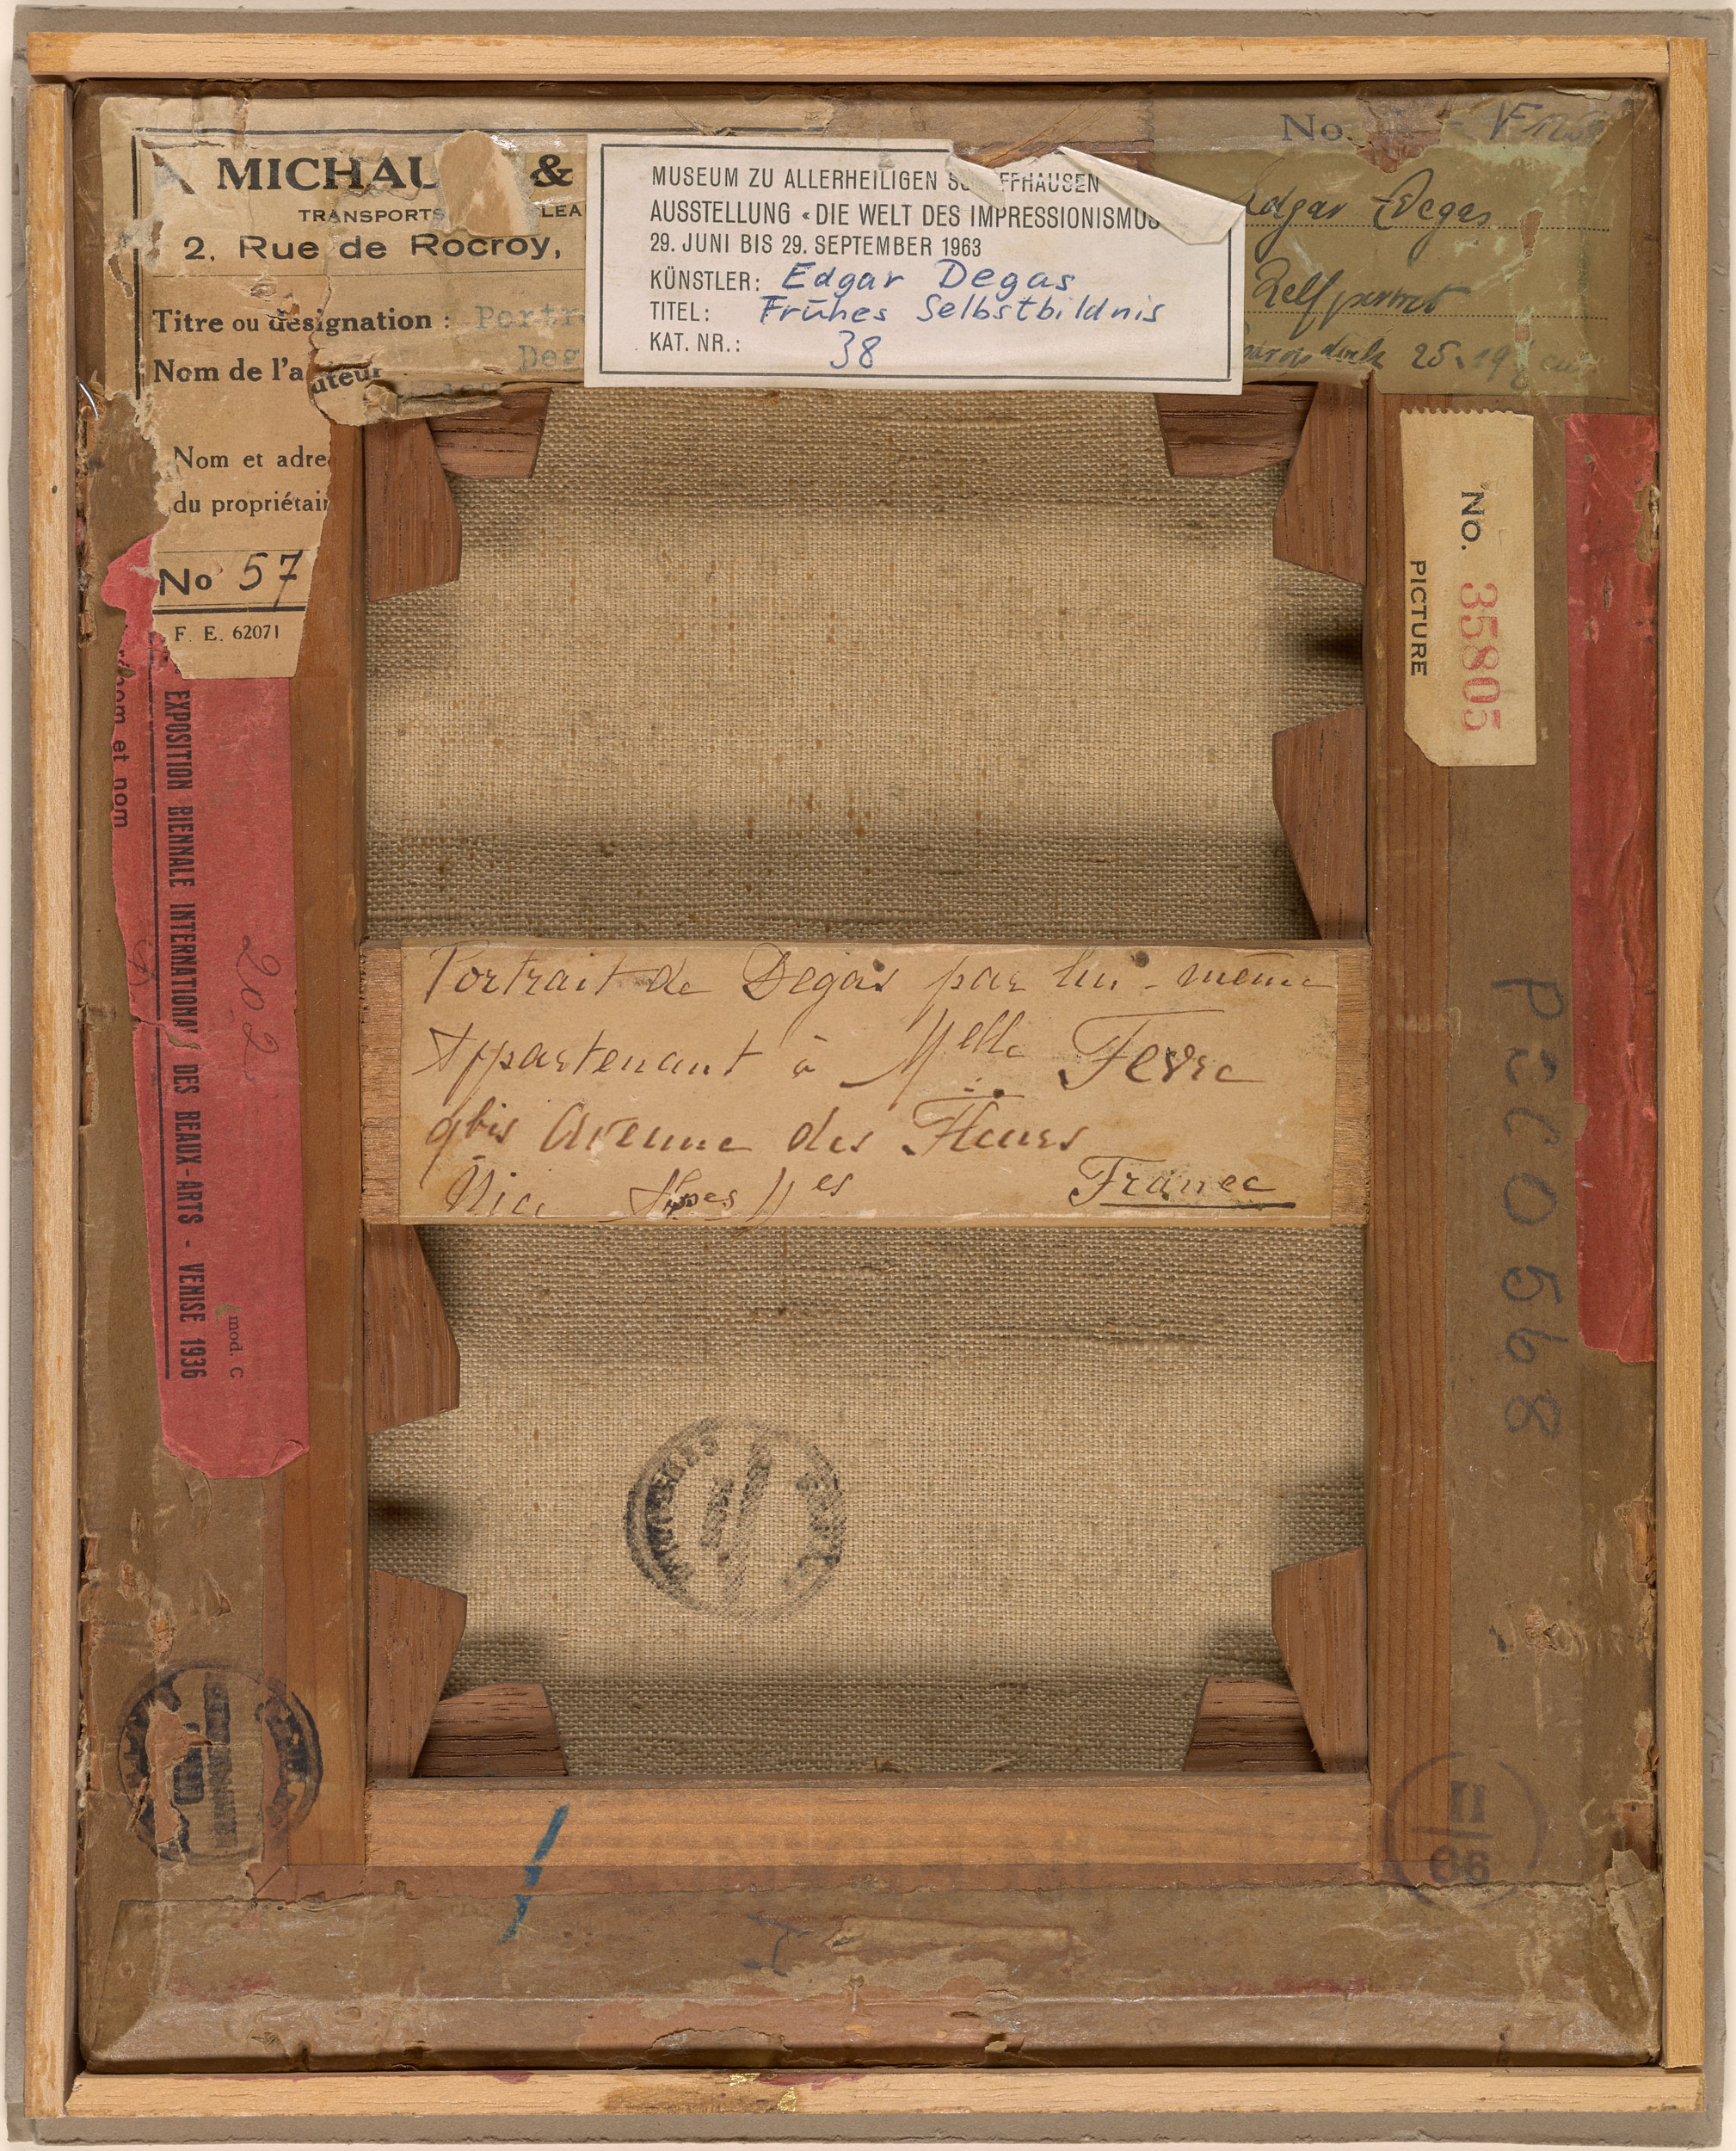 MICHAU &
TRANSPORTS
2, Rue de Rocroy,
Titre ou désignation : Portr
Nom de l'auteur Deg
Nom et adre
du propriétair
No 57
F. E. 62071
MUSEUM ZU ALLERHEILIGEN SCHAFFHAUSEN
AUSSTELLUNG «DIE WELT DES IMPRESSIONISMUS
29. JUNI BIS 29. SEPTEMBER 1963
KÜNSTLER: Edgar Degas
TITEL: Frühes Selbstbildnis
KAT. NR.: 38
No.
Edgar Degas
Zelfportret
25 x 19
No. 35805
PICTURE
nom et nom
EXPOSITION BIENNALE INTERNATIONA DES BEAUX-ARTS - VENISE 1936
202
mod. C
Portrait de Degas par lui-même
Appartenant à Melle Fevre
9bis Avenue des Fleurs
Nice Alpes Mes France
PEC0568
II
66